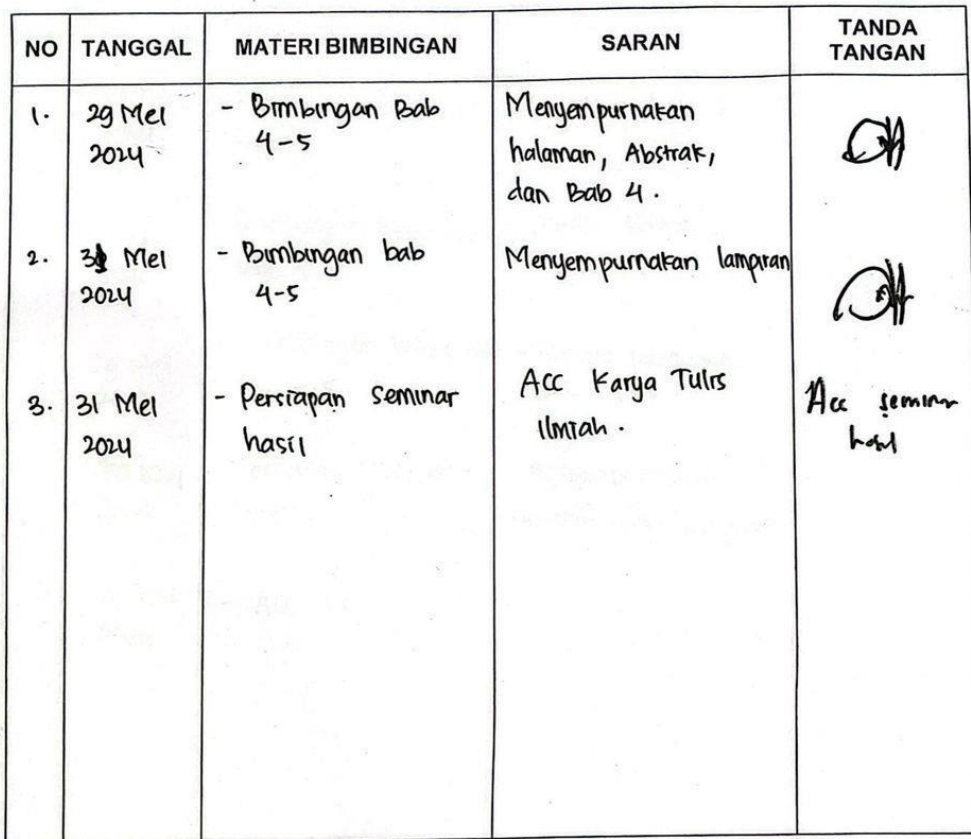 NO TANGGAL MATERI BIMBINGAN SARAN TANDA TANGAN
1. 29 Mei 2024 - Bimbingan Bab 4-5 Menyempurnakan halaman, Abstrak, dan Bab 4.
2. Mei 2024 - Bimbingan bab 4-5 Menyempurnakan lampiran
3. 31 Mei 2024 - Persiapan seminar hasil Acc Karya Tulis Ilmiah. Acc seminar hasil